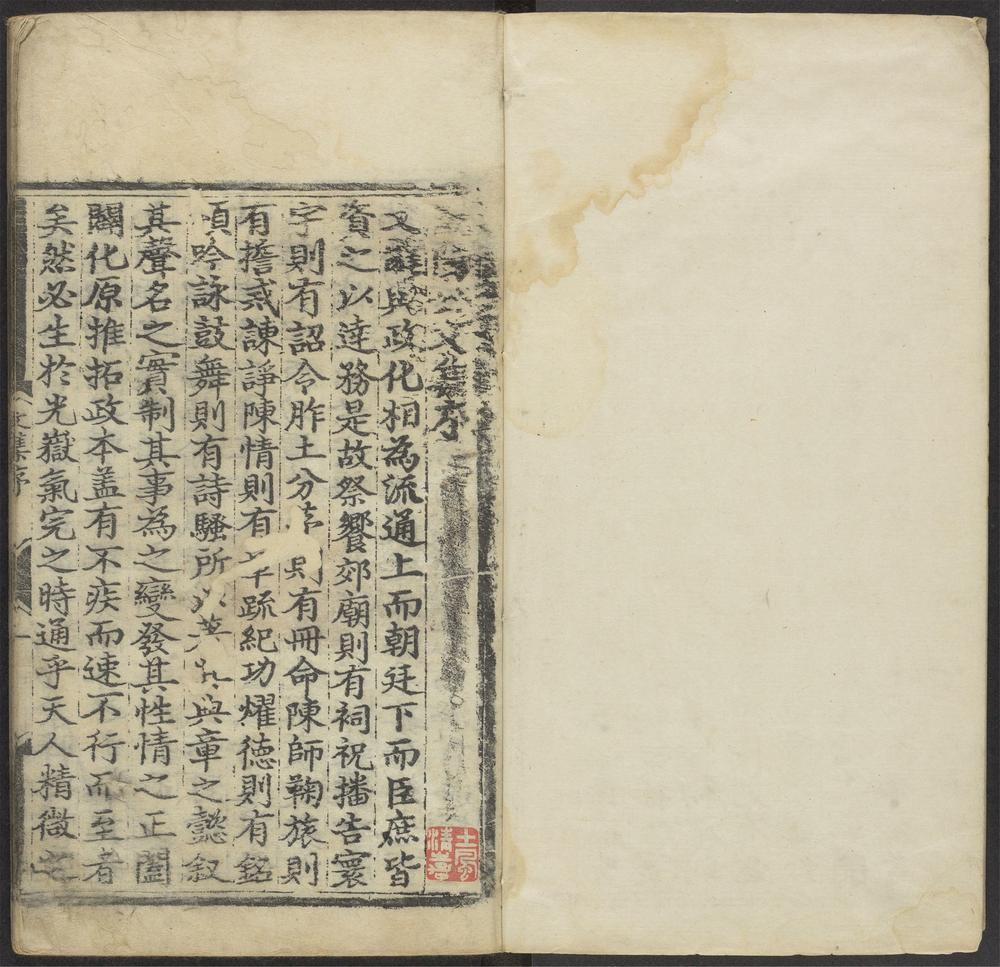 文集序
與政化相為流通上而朝廷下而臣庶皆
資之以達務是故祭饗郊廟則有祠祝播告寰
宇則有詔令胙土分則有冊命陳師鞠旅則
有擔戒諫諍陳情則有疏紀功燿德則有銘
頌吟詠鼓舞則有詩騷所以與章之懿叙
其聲名之實制其事為之變發其性情之正闔
闢化原推拓政本盖有不疾而速不行而至者
矣然必生於光嶽氣完之時通乎天人精微之
文集序
一